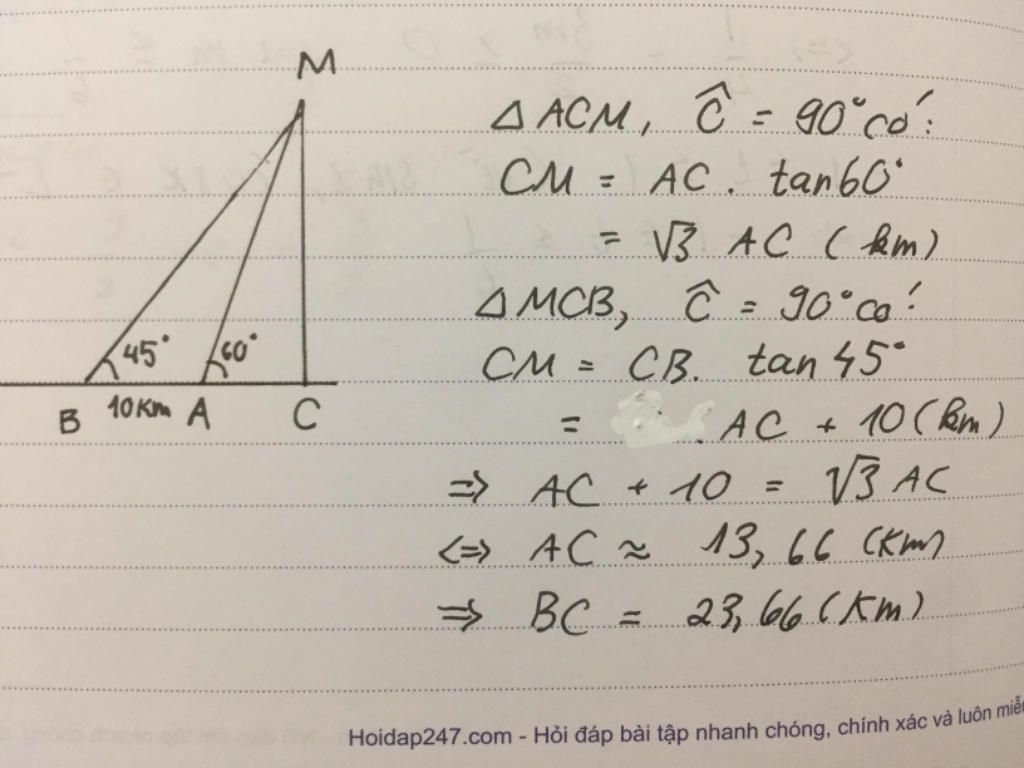 M
45°
60°
B
10Km
A
C
△ ACM, Ĉ = 90° có:
CM = AC . tan60°
= √3 AC (km)
△ MCB, Ĉ = 90° có:
CM = CB. tan 45°
= AC + 10 (km)
=> AC + 10 = √3 AC
<=> AC ≈ 13,66 (Km)
=> BC = 23,66 (Km)
Hoidap247.com - Hỏi đáp bài tập nhanh chóng, chính xác và luôn miễn